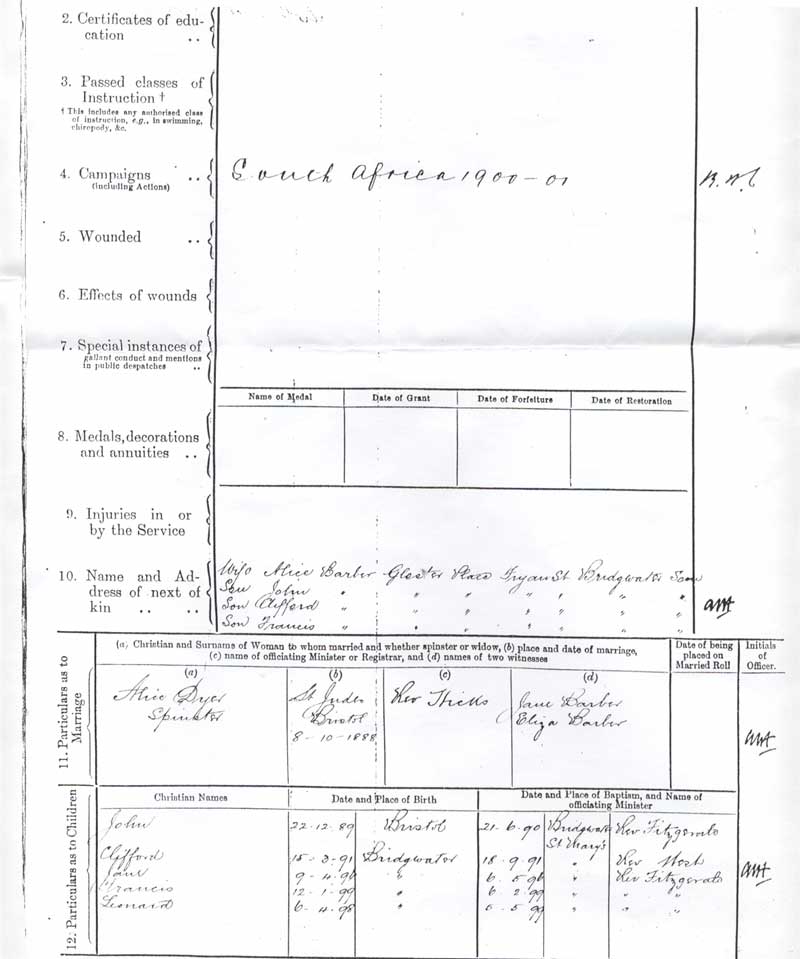 2. Certificates of edu-
cation ..
3. Passed classes of
Instruction †
† This includes any authorised class
of instruction, e.g., in swimming,
chiropody, &c.
4. Campaigns ..
(including Actions)
South Africa 1900-01
5. Wounded ..
6. Effects of wounds
7. Special instances of
gallant conduct and mentions
in public despatches ..
Name of Medal Date of Grant Date of Forfeiture Date of Restoration
8. Medals, decorations
and annuities ..
9. Injuries in or
by the Service
10. Name and Ad-
dress of next of
kin .. ..
Wife Alice Barber Gloster Place Fryan St Bridgwater Som
Son John " " " " " " "
Son Clifford " " " " " " "
Son Francis " " " " " "
(a) Christian and Surname of Woman to whom married and whether spinster or widow, (b) place and date of marriage,
(c) name of officiating Minister or Registrar, and (d) names of two witnesses
Date of being
placed on
Married Roll
Initials
of
Officer.
11. Particulars as to
Marriage
(a) (b) (c) (d)
Alice Dyer St Judes Rev Hicks Jane Barber
Spinster Bristol Eliza Barber
8-10-1888
12. Particulars as to Children
Christian Names Date and Place of Birth Date and Place of Baptism, and Name of
officiating Minister
John 22.12.89 Bristol 21.6.90 Bridgwater Rev Fitzgerald
St Mary's
Clifford 15-3-91 Bridgwater 18.9.91 " Rev
Jane 9-4-96 " 6.5.96 " Rev Fitzgerald
Francis 12.1.99 " 6.2.99 " " "
Leonard 6.4.98 " 5.5.99 " " "